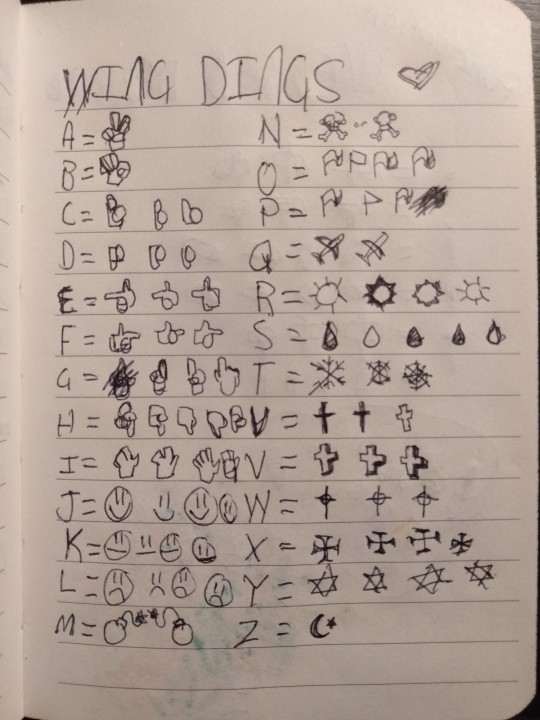 WING DINGS
A = N =
B = O =
C = P =
D = Q =
E = R =
F = S =
G = T =
H = V =
I = V =
J = W =
K = X =
L = Y =
M = Z =